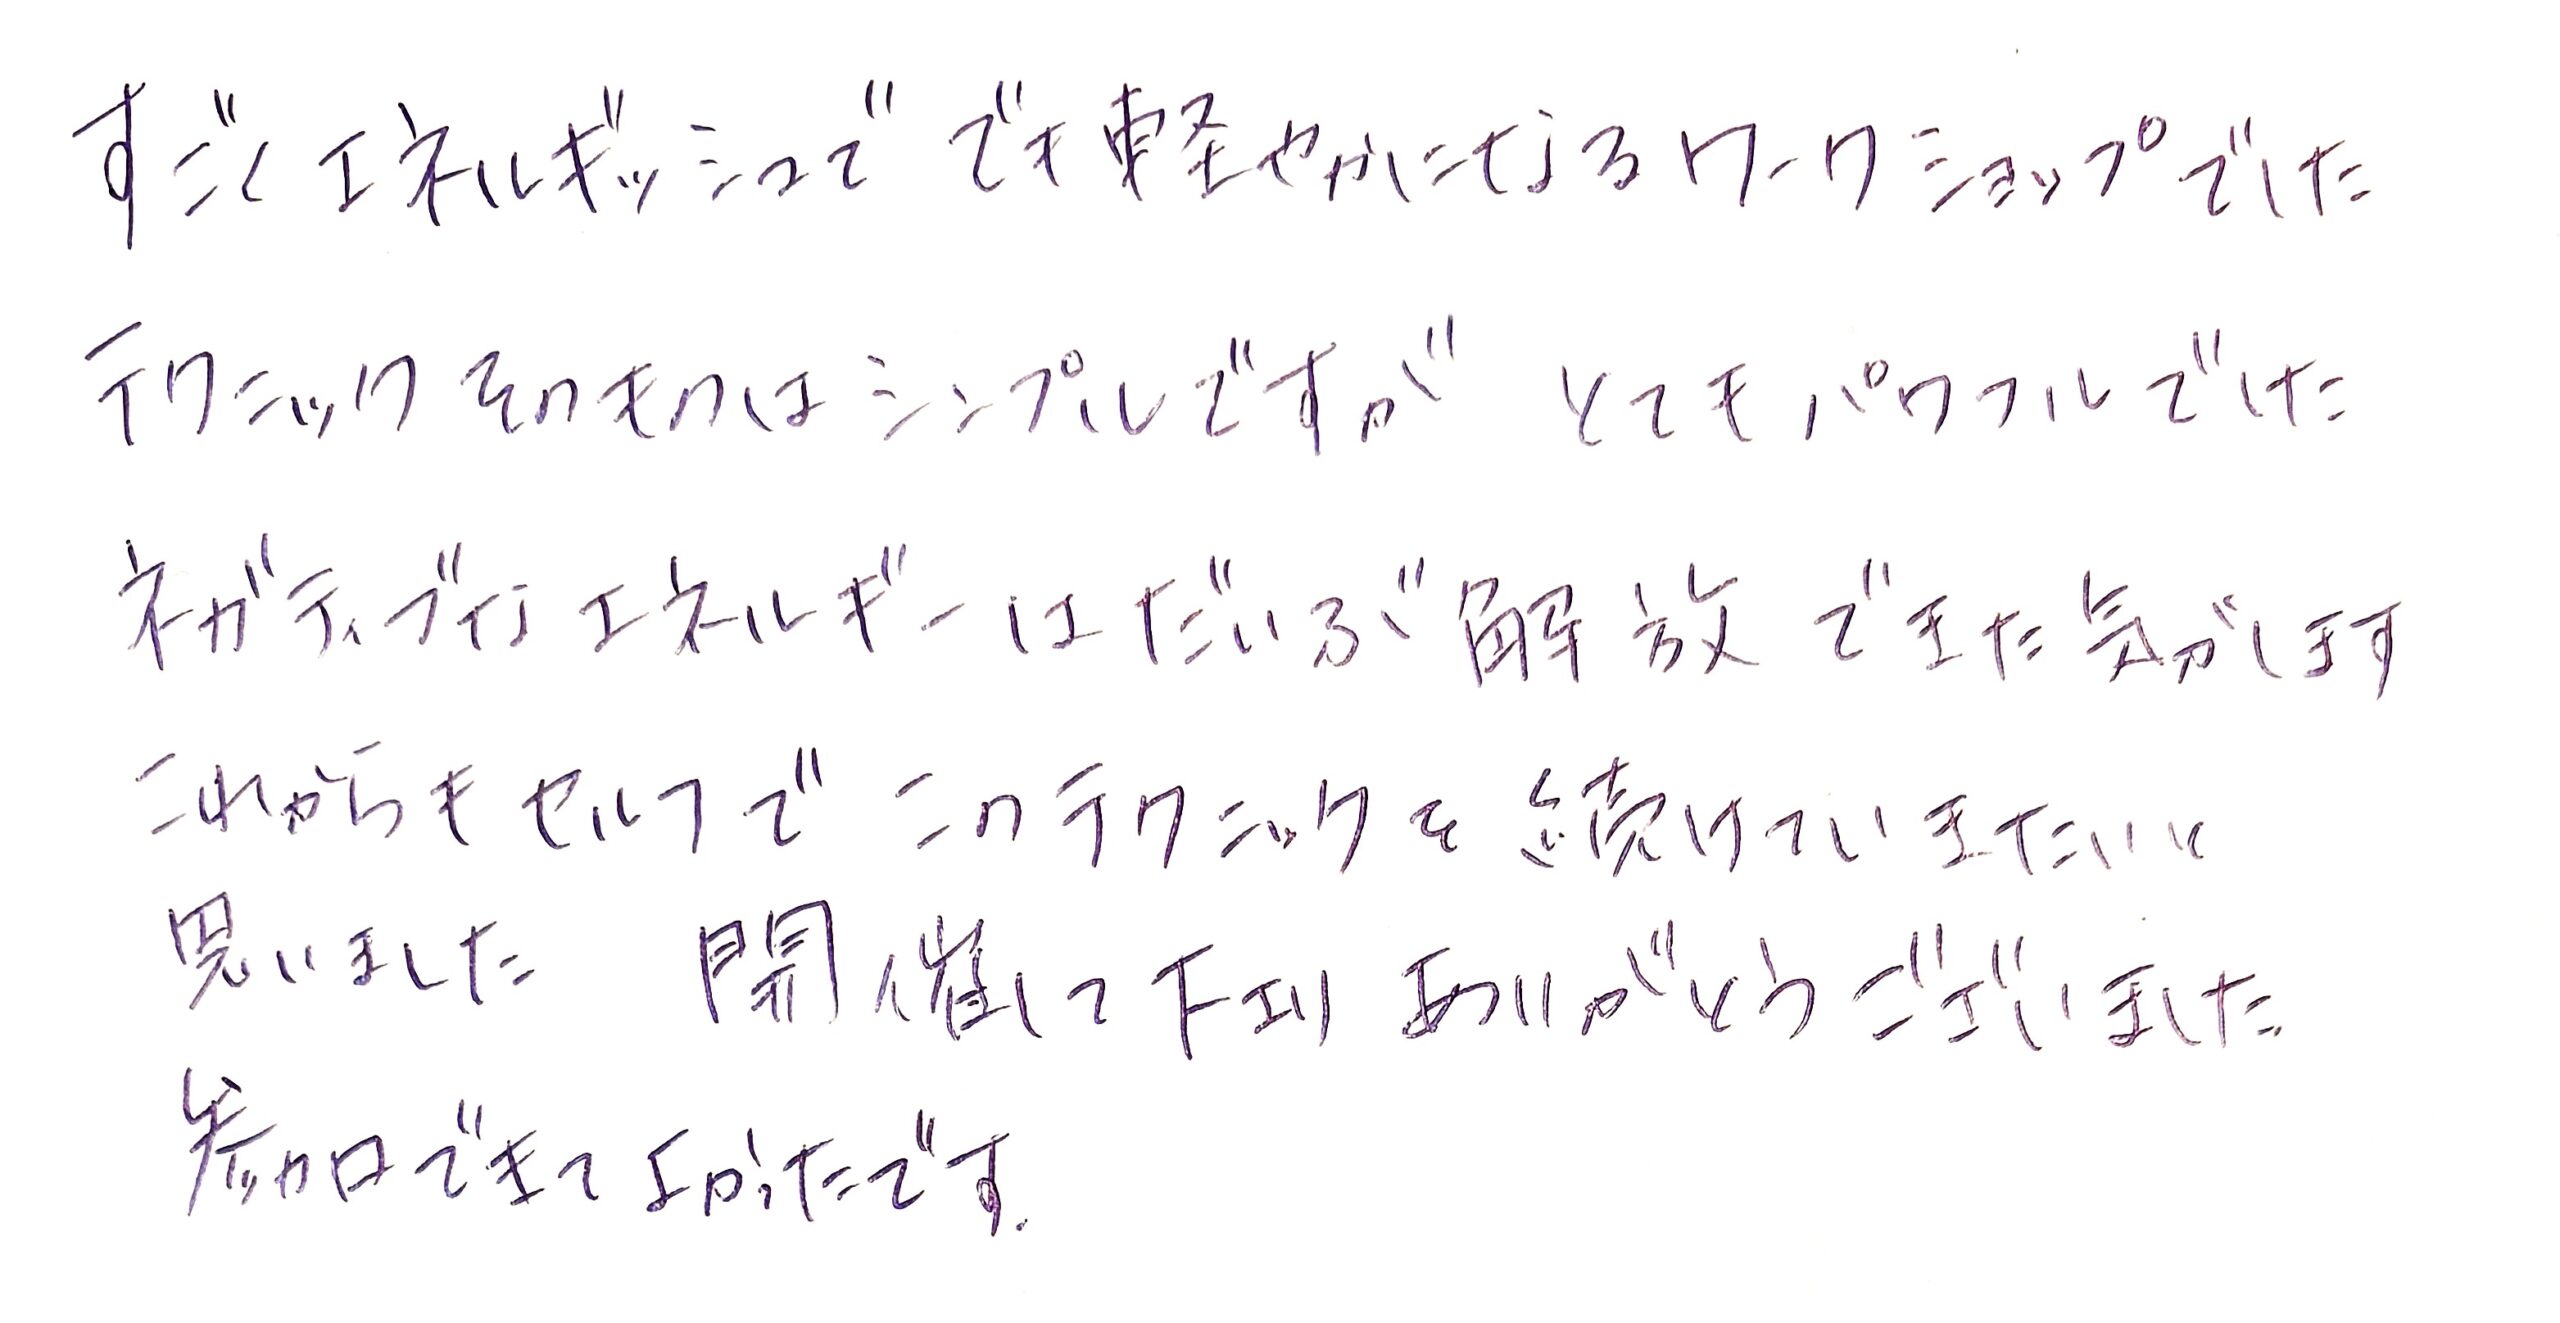 すごくエネルギッシュで でも軽やかになるワークショップでした
テクニックそのものはシンプルですが とてもパワフルでした
ネガティブなエネルギーはだいぶ解放できた気がします
これからもセルフで このテクニックを続けていきたいと
思いました 開催して下さり ありがとうございました
参加できてよかったです.